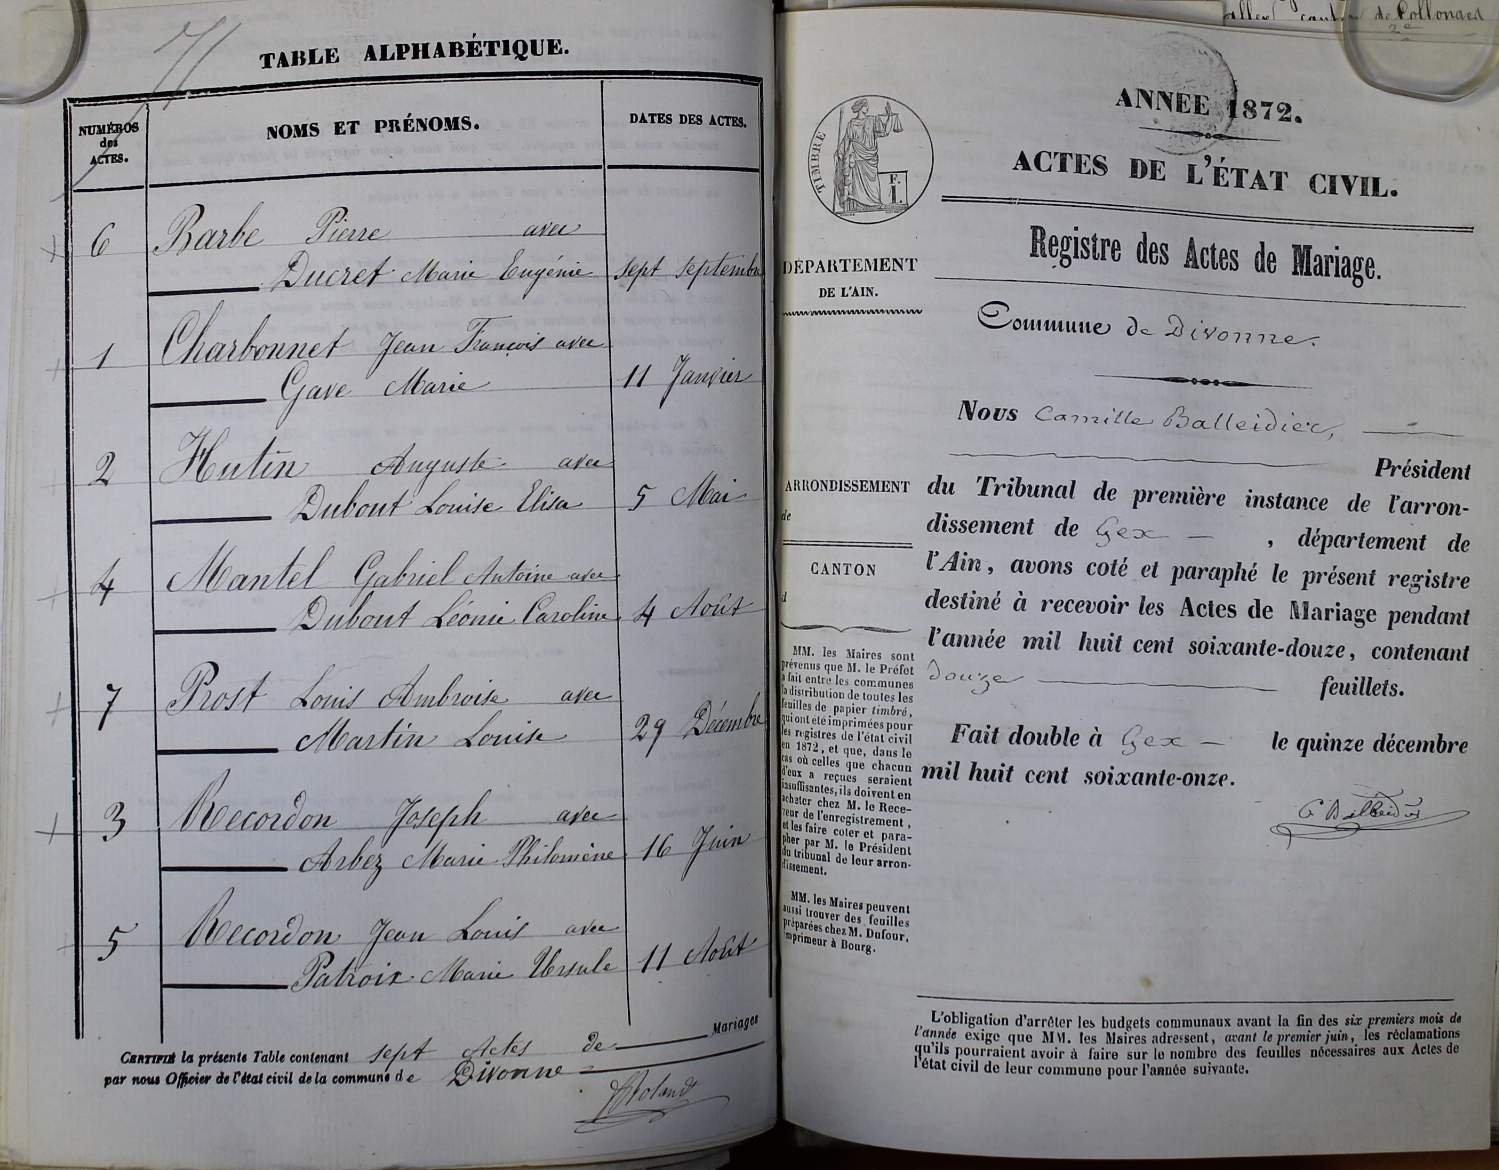 TABLE ALPHABÉTIQUE.
NUMÉROS des ACTES.
NOMS ET PRÉNOMS.
DATES DES ACTES.
6 Barbe Pierre avec
Ducret Marie Eugénie sept septembre
1 Charbonnet Jean François avec
Gave Marie 11 Janvier
2 Hutin Auguste avec
Dubout Louise Elisa 5 Mai
4 Mantel Gabriel Antoine avec
Dubout Léonie Caroline 4 Août
7 Prost Louis Ambroise avec
Martin Louise 29 Décembre
3 Recordon Joseph avec
Arbez Marie Philomène 16 Juin
5 Recordon Jean Louis avec
Patroix Marie Ursule 11 Août
CERTIFIÉ la présente Table contenant sept Actes de Mariages
par nous Officier de l'état civil de la commune de Divonne
allex canton de Collonges
2e
ANNEE 1872.
ACTES DE L'ÉTAT CIVIL.
TIMBRE
F. I.
DÉPARTEMENT
DE L'AIN.
Registre des Actes de Mariage.
Commune de Divonne.
Nous Camille Balleidier,
Président
du Tribunal de première instance de l'arron-
dissement de Gex , département de
l'Ain, avons coté et paraphé le présent registre
destiné à recevoir les Actes de Mariage pendant
l'année mil huit cent soixante-douze, contenant
douze feuillets.
Fait double à Gex le quinze décembre
mil huit cent soixante-onze.
C Balleidier
ARRONDISSEMENT
de
CANTON
d
MM. les Maires sont
prévenus que M. le Préfet
a fait entre les communes
la distribution de toutes les
feuilles de papier timbré,
qui ont été imprimées pour
les registres de l'état civil
en 1872, et que, dans le
cas où celles que chacun
d'eux a reçues seraient
insuffisantes, ils doivent en
acheter chez M. le Rece-
veur de l'enregistrement,
et les faire coter et para-
pher par M. le Président
du tribunal de leur arron-
dissement.
MM. les Maires peuvent
aussi trouver des feuilles
préparées chez M. Dufour,
imprimeur à Bourg.
L'obligation d'arrêter les budgets communaux avant la fin des six premiers mois de
l'année exige que MM. les Maires adressent, avant le premier juin, les réclamations
qu'ils pourraient avoir à faire sur le nombre des feuilles nécessaires aux Actes de
l'état civil de leur commune pour l'année suivante.